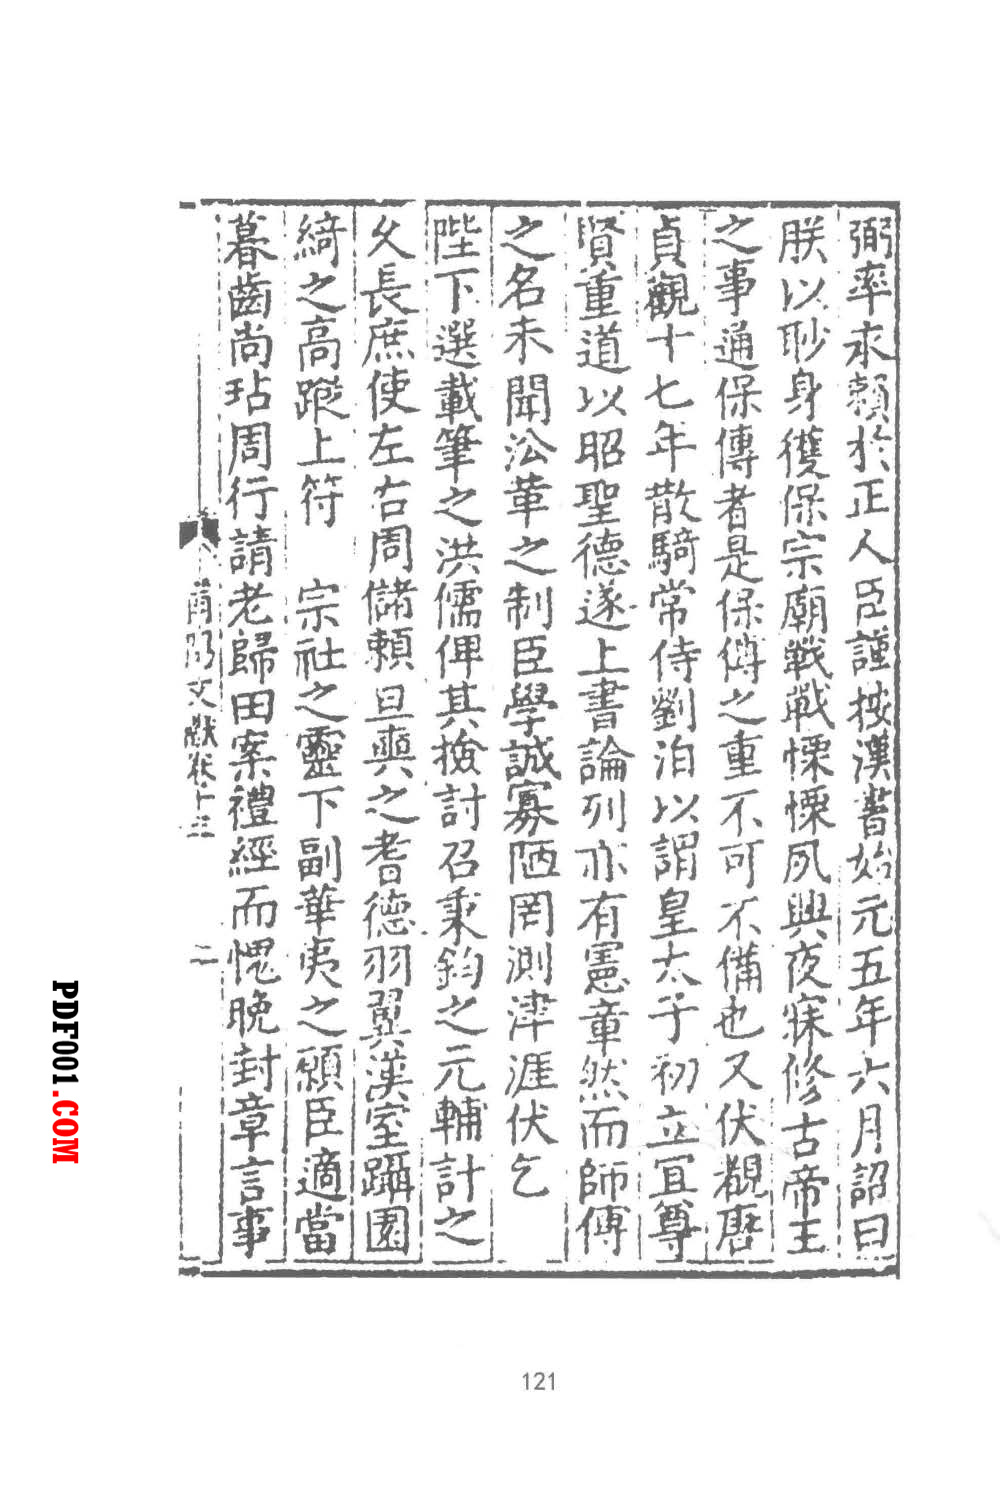 弼率求賴於正人臣謹按漢書始元五年六月詔曰
朕以眇身獲保宗廟戰戰慄慄夙興夜寐修古帝王
之事通保傳者是保傅之重不可不備也又伏覩唐
貞觀十七年散騎常侍劉洎以謂皇太子初立宜尊
賢重道以昭聖德遂上書論列亦有憲章然而師傅
之名未聞㳂革之制臣學誠寡陋罔測津涯伏乞
陛下選載筆之洪儒俾其撿討召秉鈞之元輔計之
久長庶使左右周儲賴旦奭之耆德羽翼漢室躡園
綺之高蹤上符　宗社之靈下副華夷之願臣適當
暮齒尚玷周行請老歸田案禮經而愧晚封章言事
甫陽文獻卷十三
二
121
PDF001.COM